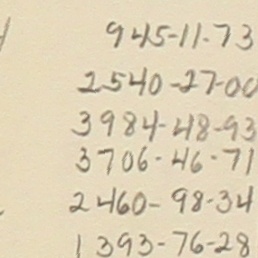 945-11-73
2540-27-00
3984-48-93
3706-46-71
2460-98-34
1393-76-28